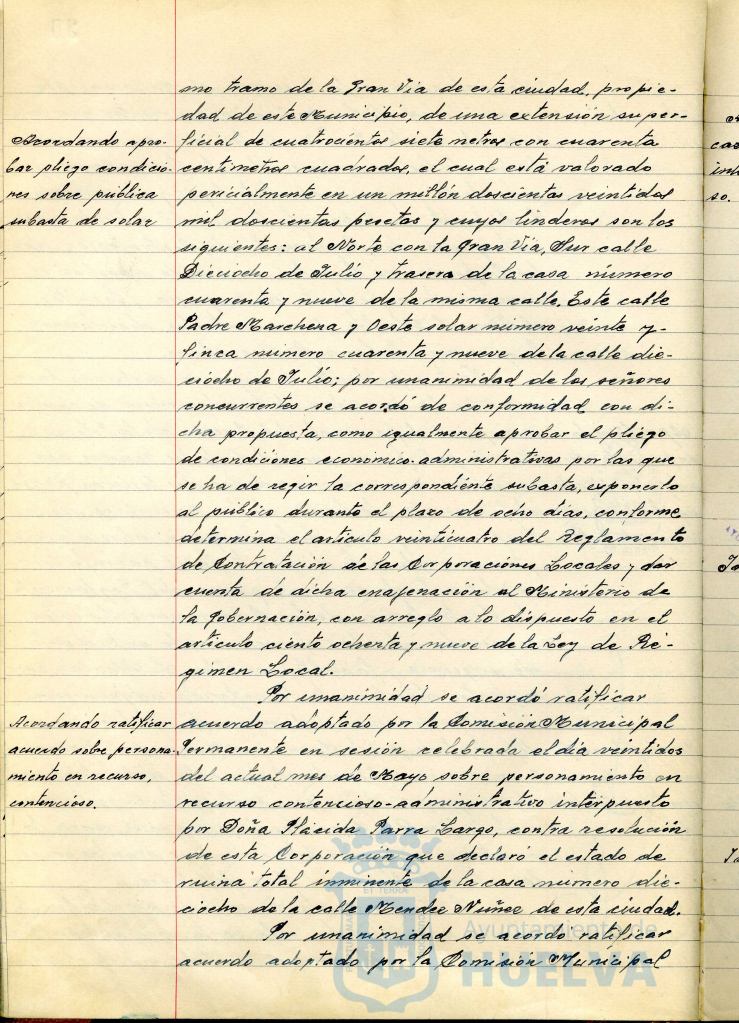 mo tramo de la Gran Via de esta ciudad, propie-
dad de este Municipio, de una extensión super-
Acordando apro-
ficial de cuatrocientos siete metros con cuarenta
bar pliego condicio-
centimetros cuadrados, el cual está valorado
nes sobre pública
pericialmente en un millón doscientas veintidos
subasta de solar
mil doscientas pesetas y cuyos linderos son los
siguientes: al Norte con la Gran Via, Sur calle
Dieciocho de Julio y trasera de la casa número
cuarenta y nueve de la misma calle. Este calle
Padre Marchena y Oeste solar número veinte y
finca número cuarenta y nueve de la calle die-
ciocho de Julio; por unanimidad de los señores
concurrentes se acordó de conformidad con di-
cha propuesta, como igualmente aprobar el pliego
de condiciones económico-administrativas por las que
se ha de regir la correspondiente subasta, exponerlo
al público durante el plazo de ocho días, conforme
determina el artículo veinticuatro del Reglamento
de Contratación de las Corporaciones Locales y dar
cuenta de dicha enajenación al Ministerio de
la Gobernación, con arreglo a lo dispuesto en el
artículo ciento ochenta y nueve de la Ley de Ré-
gimen Local.
Por unanimidad se acordó ratificar
Acordando ratificar
acuerdo adoptado por la Comisión Municipal
acuerdo sobre persona-
Permanente en sesión celebrada el día veintidos
miento en recurso,
del actual mes de Mayo sobre personamiento en
contencioso.
recurso contencioso-administrativo interpuesto
por Doña Plácida Parra Largo, contra resolución
de esta Corporación que declaró el estado de
ruina total inminente de la casa número die-
ciocho de la calle Mendez Nuñez de esta ciudad.
Por unanimidad se acordó ratificar
acuerdo adoptado por la Comisión Municipal
Ayuntamiento de
HUELVA